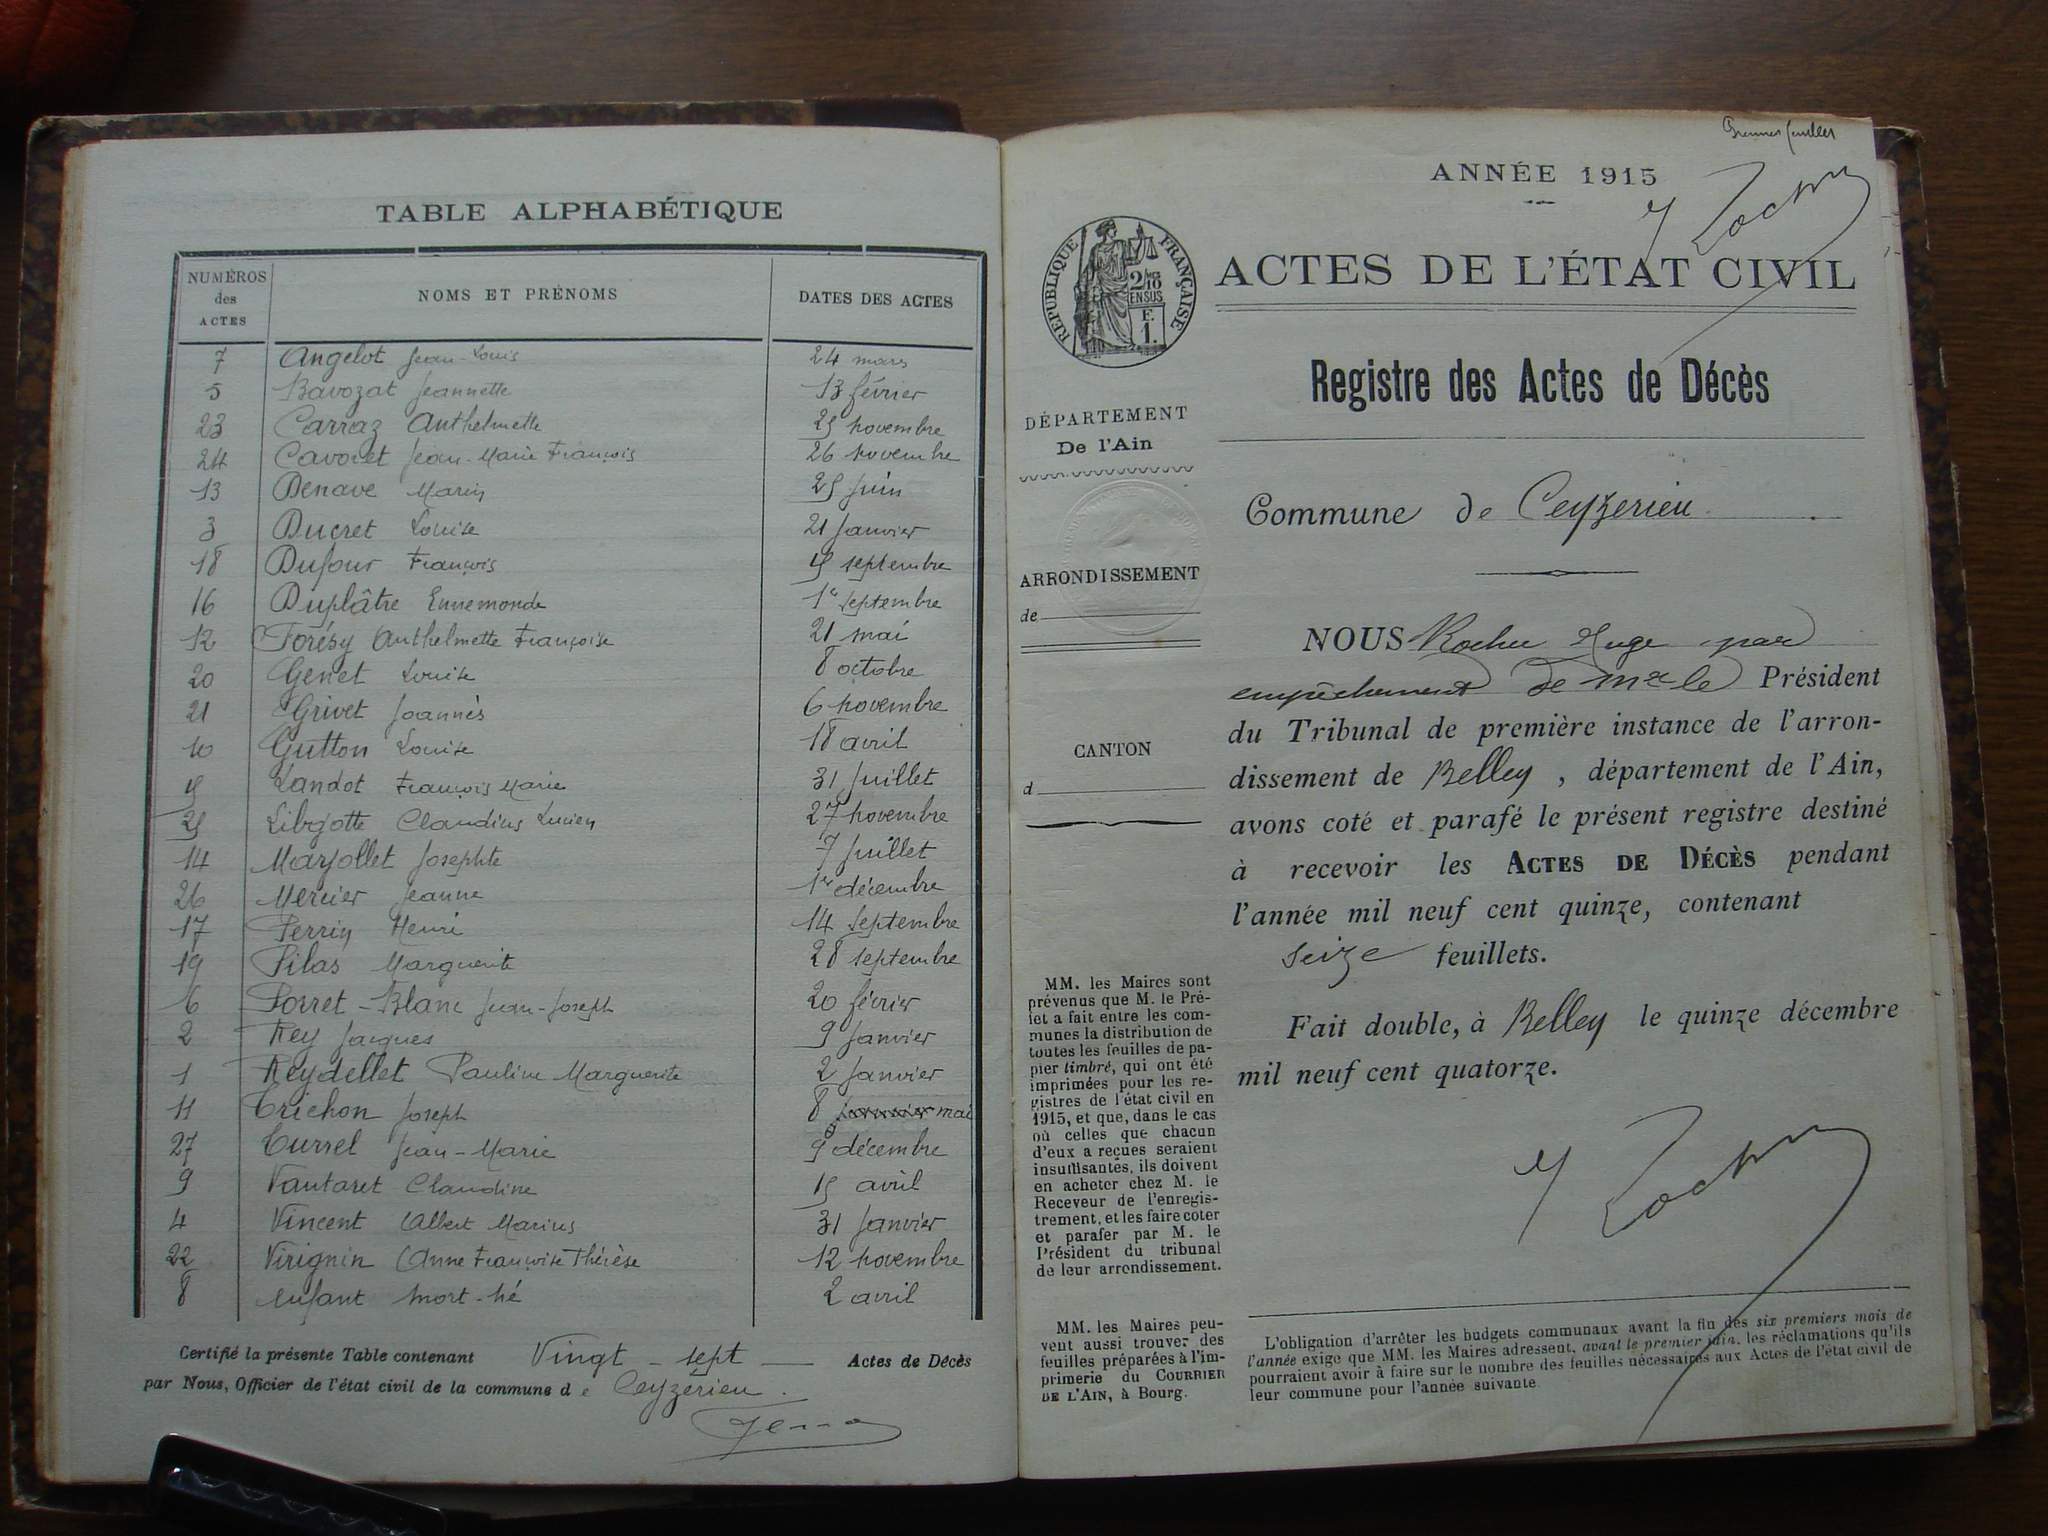 TABLE ALPHABÉTIQUE
NUMÉROS des ACTES NOMS ET PRÉNOMS DATES DES ACTES
7 Angelot Jean-Louis 24 mars
5 Bavozat Jeannette 13 février
23 Carraz Anthelmette 25 novembre
24 Cavoret Jean-Marie François 26 novembre
13 Denave Marin 25 juin
3 Ducret Louise 21 janvier
18 Dufour François septembre
16 Duplâtre Ennemonde 1er septembre
12 Forésy Anthelmette Françoise 21 mai
20 Genet Louise 8 octobre
21 Grivet Joannès 6 novembre
10 Gutton Louise 18 avril
Landot François Marie 31 juillet
25 Claudius Lucien 27 novembre
14 Marjollet Josephte 7 juillet
26 Mercier Jeanne 1er décembre
17 Perrin Henri 14 septembre
19 Pilas Marguerite 28 septembre
6 Porret-Blanc Jean-Joseph 20 février
2 Rey Jacques 9 janvier
1 Reydellet Pauline Marguerite 2 janvier
11 Trichon Joseph 8 mai
27 Turrel Jean-Marie 9 décembre
9 Vautaret Claudine 15 avril
4 Vincent Albert Marius 31 janvier
22 Virignin Anne Françoise Thérèse 12 novembre
8 enfant mort-né 2 avril
Certifié la présente Table contenant Vingt-sept Actes de Décès
par Nous, Officier de l'état civil de la commune de Ceyzerieu.
ANNÉE 1915
RÉPUBLIQUE FRANÇAISE
2/10 EN SUS
F. 1.
ACTES DE L'ÉTAT CIVIL
Registre des Actes de Décès
DÉPARTEMENT
De l'Ain
Commune de Ceyzerieu
ARRONDISSEMENT
de
CANTON
d
NOUS par
empêchement de Mr le Président
du Tribunal de première instance de l'arron-
dissement de Belley, département de l'Ain,
avons coté et parafé le présent registre destiné
à recevoir les ACTES DE DÉCÈS pendant
l'année mil neuf cent quinze, contenant
seize feuillets.
Fait double, à Belley le quinze décembre
mil neuf cent quatorze.
MM. les Maires sont
prévenus que M. le Pré-
fet a fait entre les com-
munes la distribution de
toutes les feuilles de pa-
pier timbré, qui ont été
imprimées pour les re-
gistres de l'état civil en
1915, et que, dans le cas
où celles que chacun
d'eux a reçues seraient
insuffisantes, ils doivent
en acheter chez M. le
Receveur de l'enregis-
trement, et les faire coter
et parafer par M. le
Président du tribunal
de leur arrondissement.
MM. les Maires peu-
vent aussi trouver des
feuilles préparées à l'im-
primerie du COURRIER
DE L'AIN, à Bourg.
L'obligation d'arrêter les budgets communaux avant la fin des six premiers mois de
l'année exige que MM. les Maires adressent, avant le premier juin, les réclamations qu'ils
pourraient avoir à faire sur le nombre des feuilles nécessaires aux Actes de l'état civil de
leur commune pour l'année suivante.